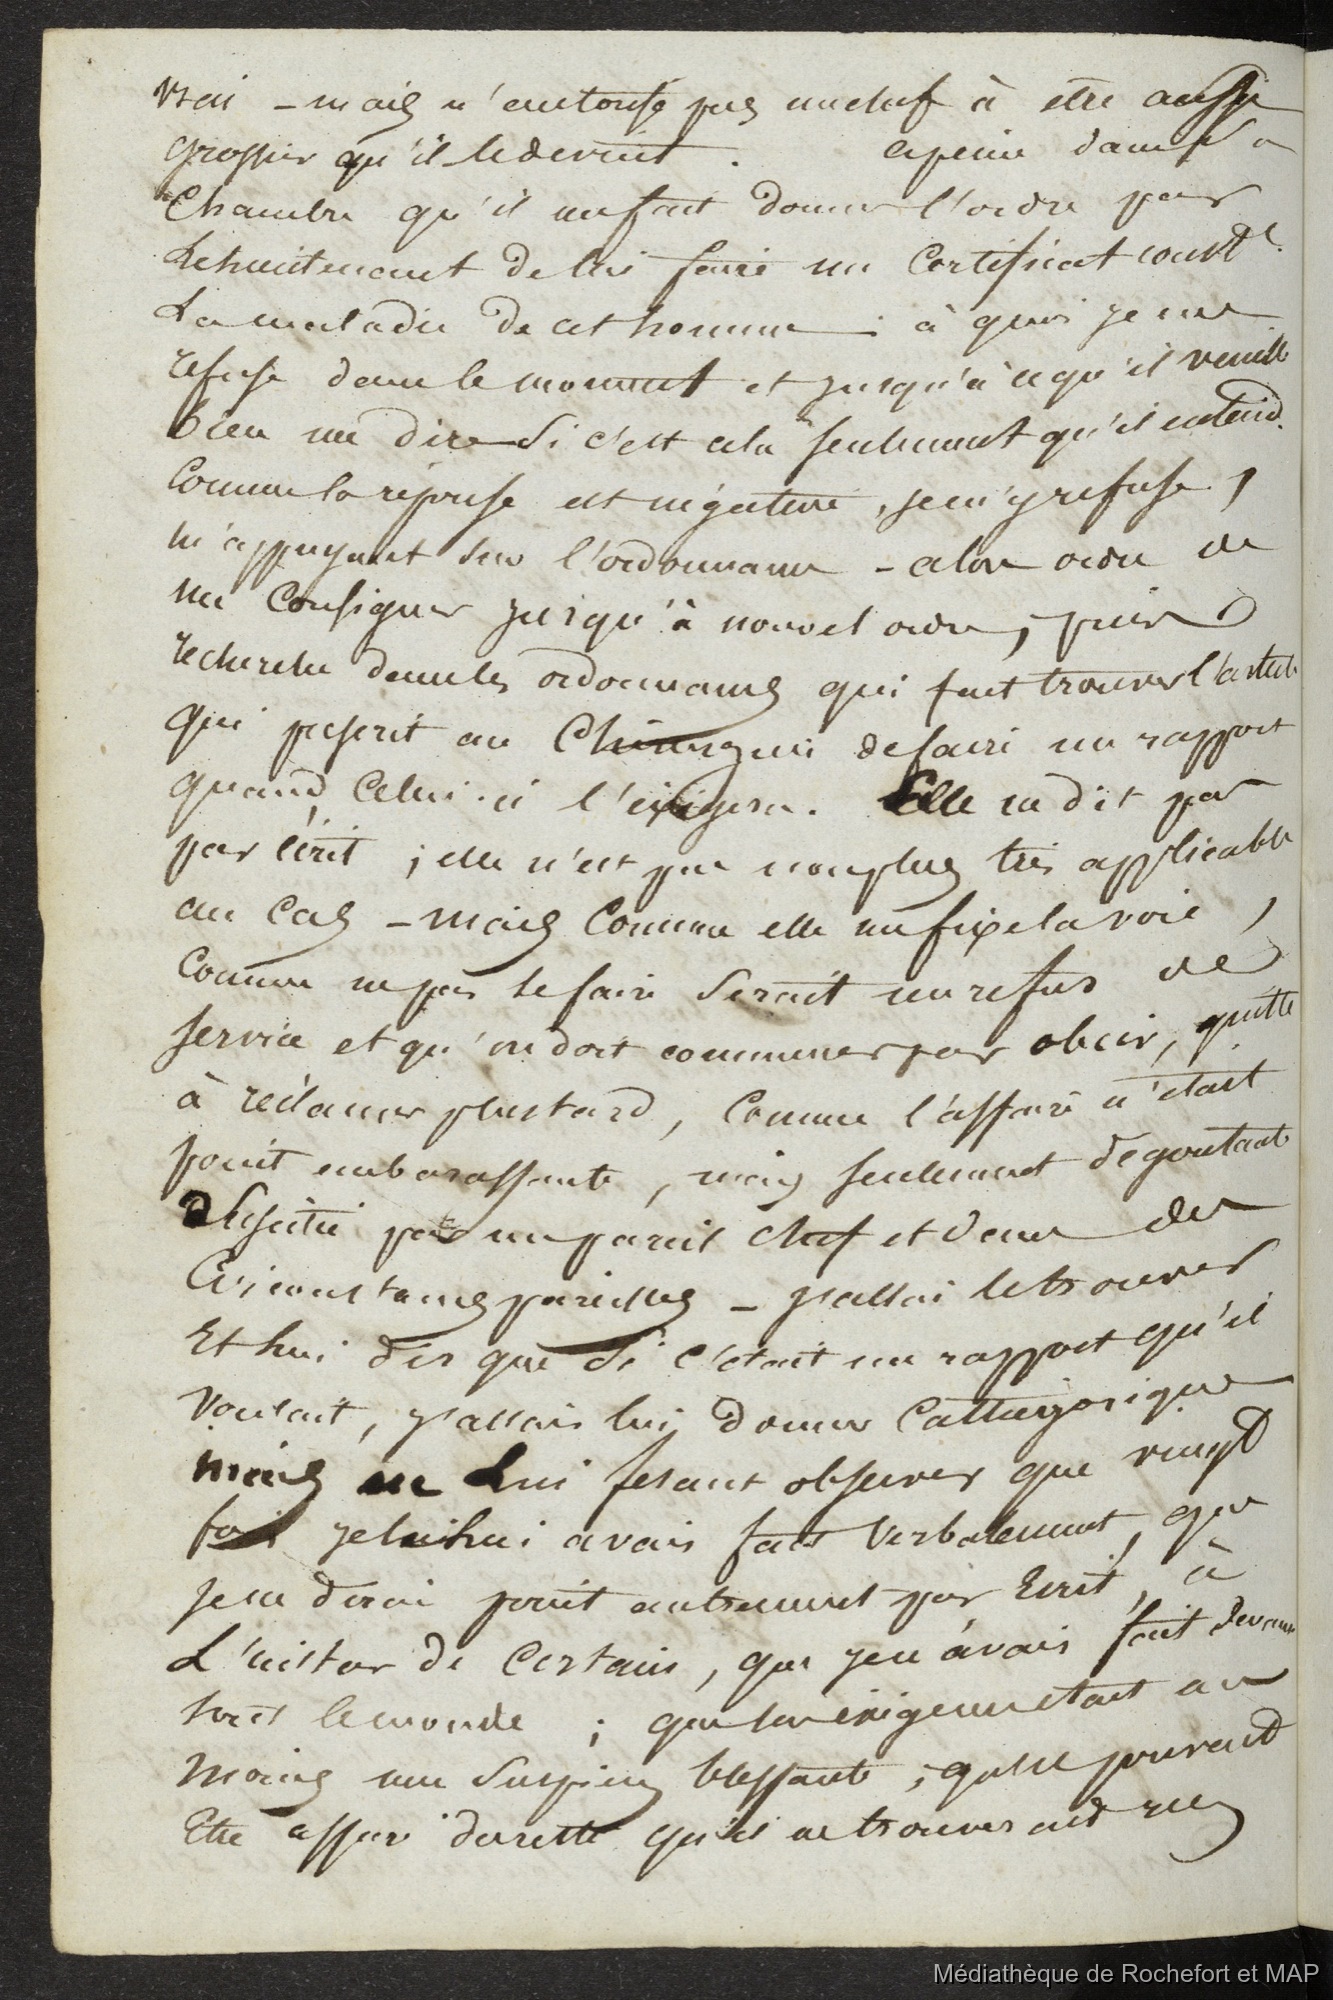 vrai – mais n'autorise pas un chef à être aussi
grossier qu'il le devint. a peine dans sa
Chambre qu'il me fait donner l'ordre par
Le lieutenant de lui faire un Certificat const.
La maladie de cet homme ; à quoi je me
refuse dans le moment et jusqu'à ce qu'il veuille
bien me dire si c'est cela seulement qu'il entend.
Comme la réponse est négative, je m'y refuse,
m'appuyant sur l'ordonnance – alors ordre de
me Consigner jusqu'à nouvel ordre ; puis
recherche dans les ordonnances qui fait trouver l'article
qui prescrit au Chirurgien de faire un rapport
quand Celui-ci l'exigera. Elle ne dit pas
par écrit ; elle n'est pas non plus très applicable
au Cas – mais Comme elle me fixe la voie,
Comme ne pas le faire serait un refus de
service et qu'on doit commencer par obéir, quitte
à réclamer plus tard, Comme l'affaire n'était
point embarassante, mais seulement dégoutante
par un pareil chef et dans des
Circonstances pareilles – j'allai le trouver
Et lui dis que si c'était un rapport qu'il
voulait, j'allais lui donner Cathégorique
mais en Lui fesant observer que vingt
fois je le lui avais fait verbalement, que
je ne dirai point autrement par Ecrit, à
L'instar de Certains, que j'en avais fait devant
tout le monde ; que son exigence était au
moins une suspicion blessante ; qu'il pouvait
Etre assuré du reste qu'il ne trouverait rien
Médiathèque de Rochefort et MAP